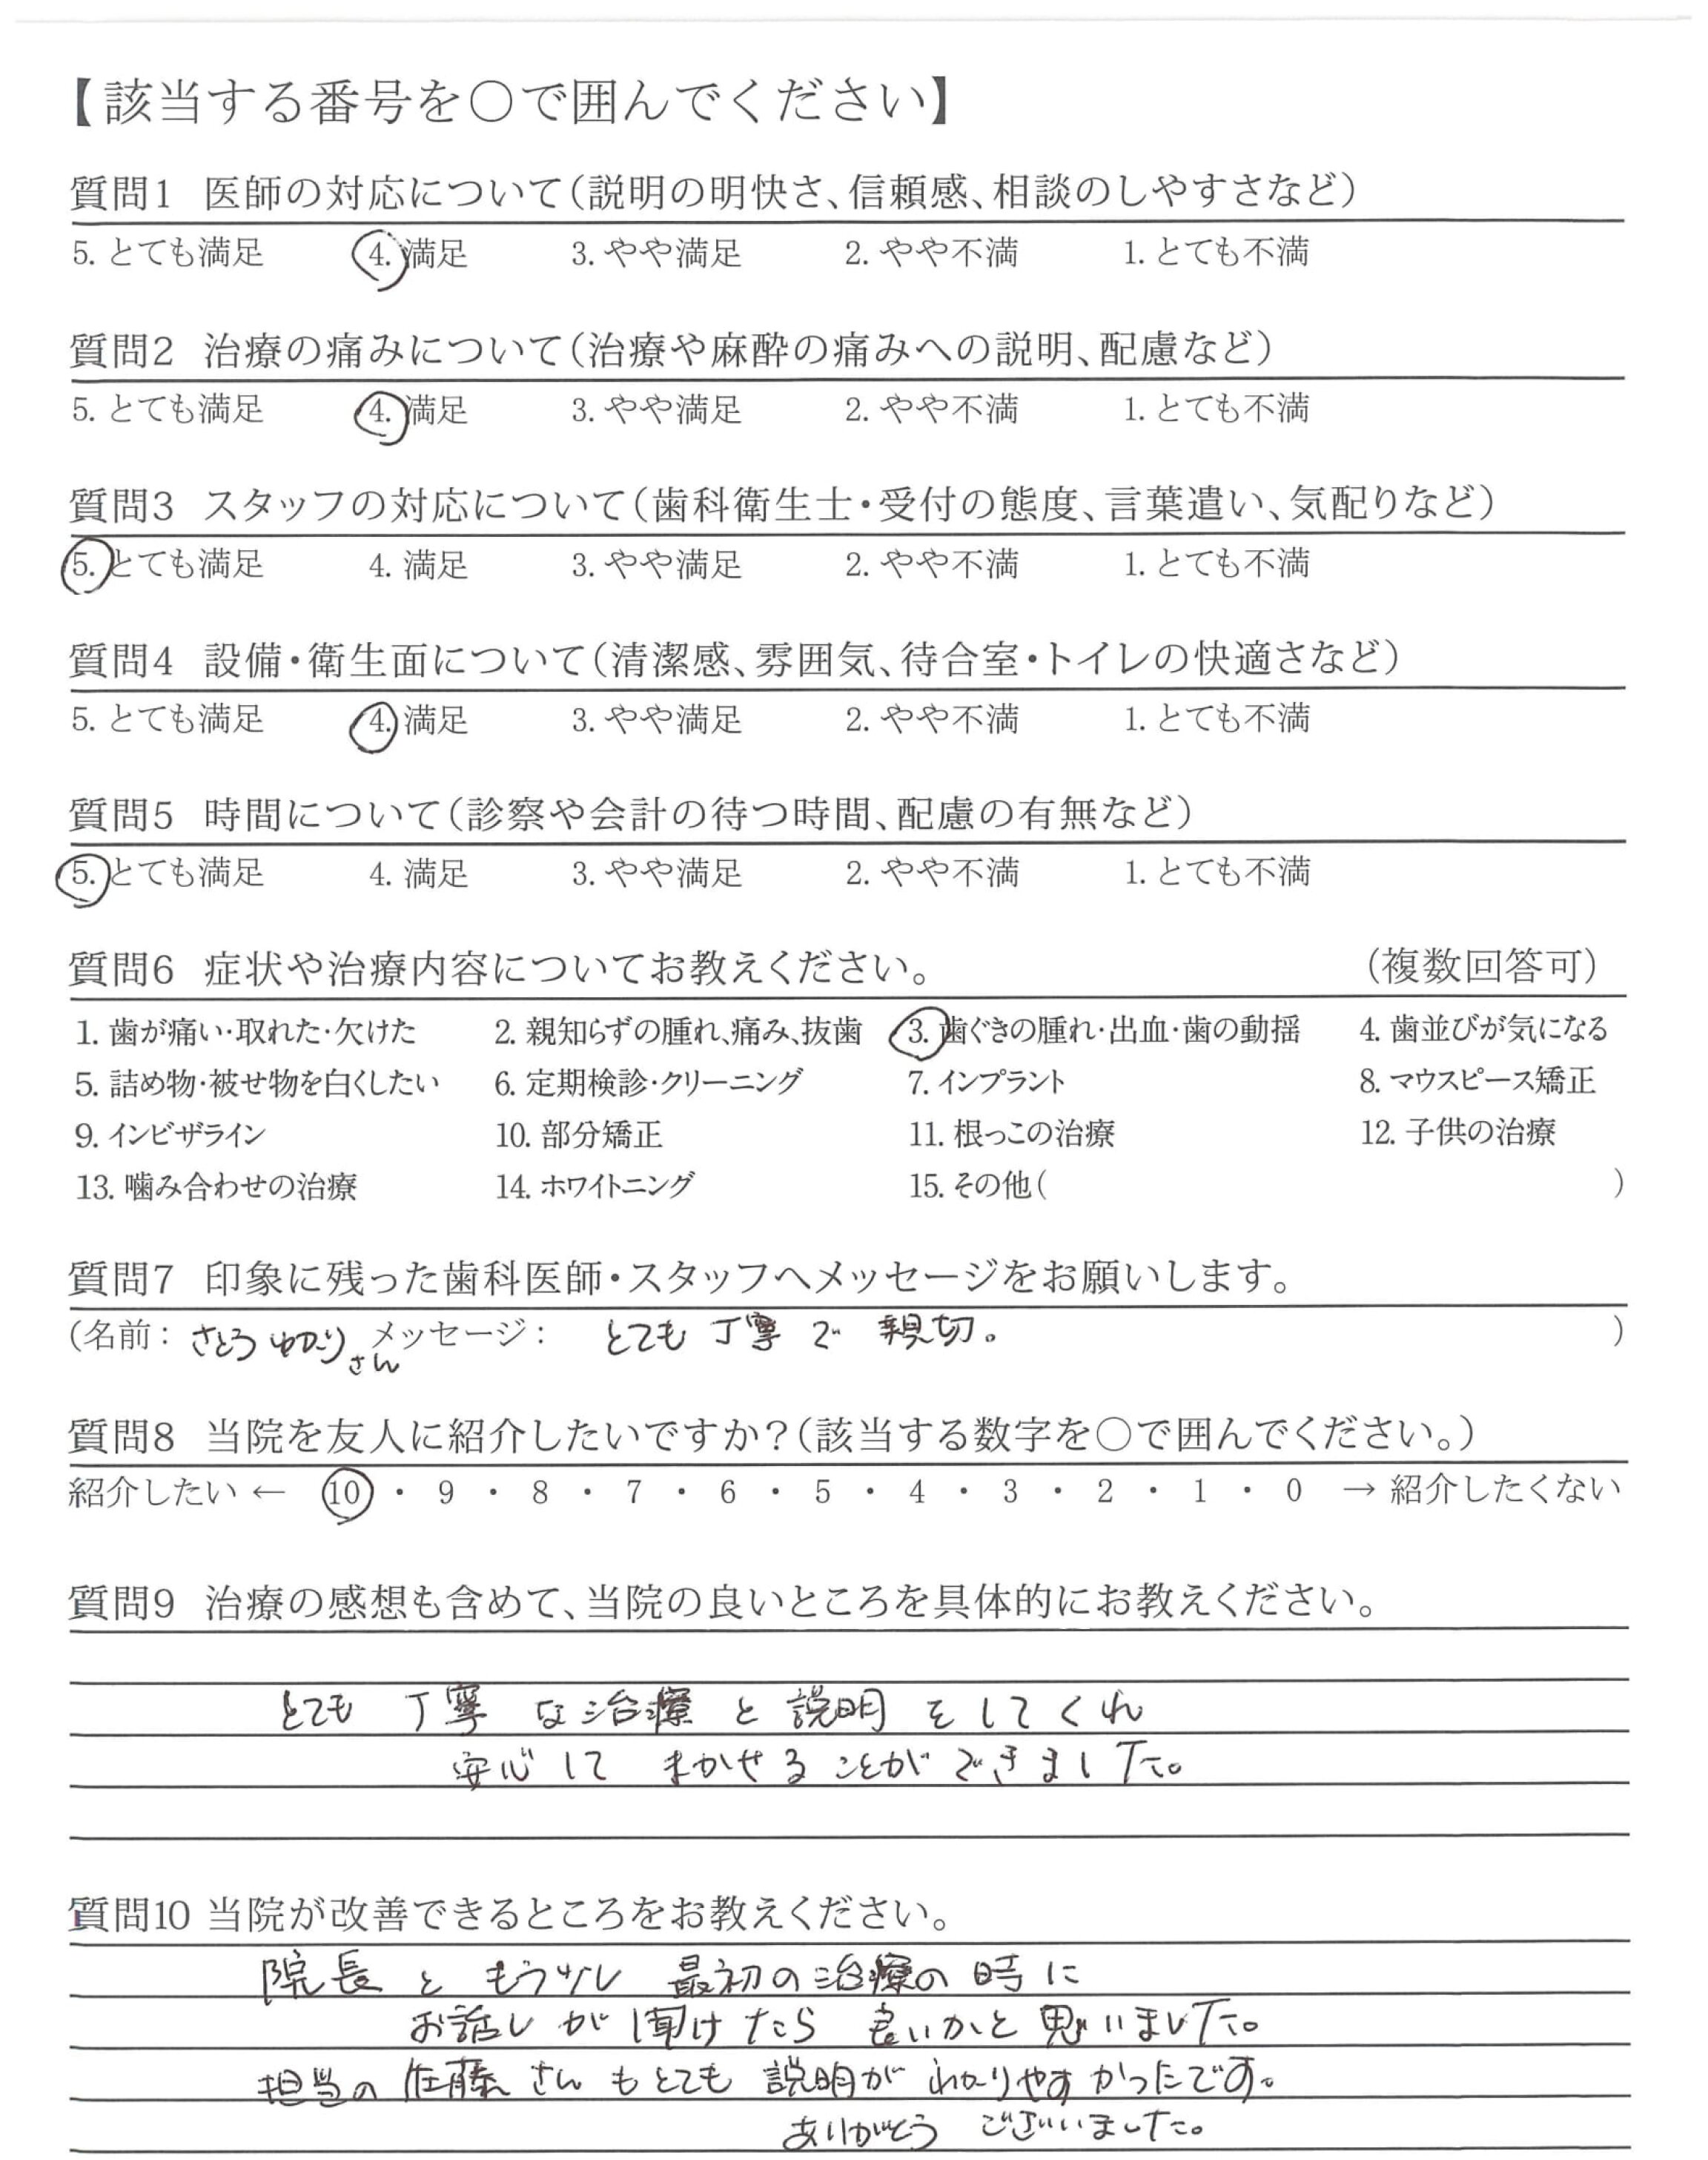 【該当する番号を〇で囲んでください】
質問1 医師の対応について(説明の明快さ、信頼感、相談のしやすさなど)
5. とても満足 4. 満足 3. やや満足 2. やや不満 1. とても不満
質問2 治療の痛みについて(治療や麻酔の痛みへの説明、配慮など)
5. とても満足 4. 満足 3. やや満足 2. やや不満 1. とても不満
質問3 スタッフの対応について(歯科衛生士・受付の態度、言葉遣い、気配りなど)
5. とても満足 4. 満足 3. やや満足 2. やや不満 1. とても不満
質問4 設備・衛生面について(清潔感、雰囲気、待合室・トイレの快適さなど)
5. とても満足 4. 満足 3. やや満足 2. やや不満 1. とても不満
質問5 時間について(診察や会計の待つ時間、配慮の有無など)
5. とても満足 4. 満足 3. やや満足 2. やや不満 1. とても不満
質問6 症状や治療内容についてお教えください。 (複数回答可)
1. 歯が痛い・取れた・欠けた 2. 親知らずの腫れ、痛み、抜歯 3. 歯ぐきの腫れ・出血・歯の動揺 4. 歯並びが気になる
5. 詰め物・被せ物を白くしたい 6. 定期検診・クリーニング 7. インプラント 8. マウスピース矯正
9. インビザライン 10. 部分矯正 11. 根っこの治療 12. 子供の治療
13. 噛み合わせの治療 14. ホワイトニング 15. その他( )
質問7 印象に残った歯科医師・スタッフへメッセージをお願いします。
(名前: さとうゆかりさん メッセージ: とても丁寧で親切。 )
質問8 当院を友人に紹介したいですか?(該当する数字を〇で囲んでください。)
紹介したい ← 10 ・ 9 ・ 8 ・ 7 ・ 6 ・ 5 ・ 4 ・ 3 ・ 2 ・ 1 ・ 0 → 紹介したくない
質問9 治療の感想も含めて、当院の良いところを具体的にお教えください。
とても丁寧な治療と説明をしてくれ
安心してまかせることができました。
質問10 当院が改善できるところをお教えください。
院長ともう少し最初の治療の時に
お話しが聞けたら良いかと思いました。
担当の佐藤さんもとても説明がわかりやすかったです。
ありがとうございました。